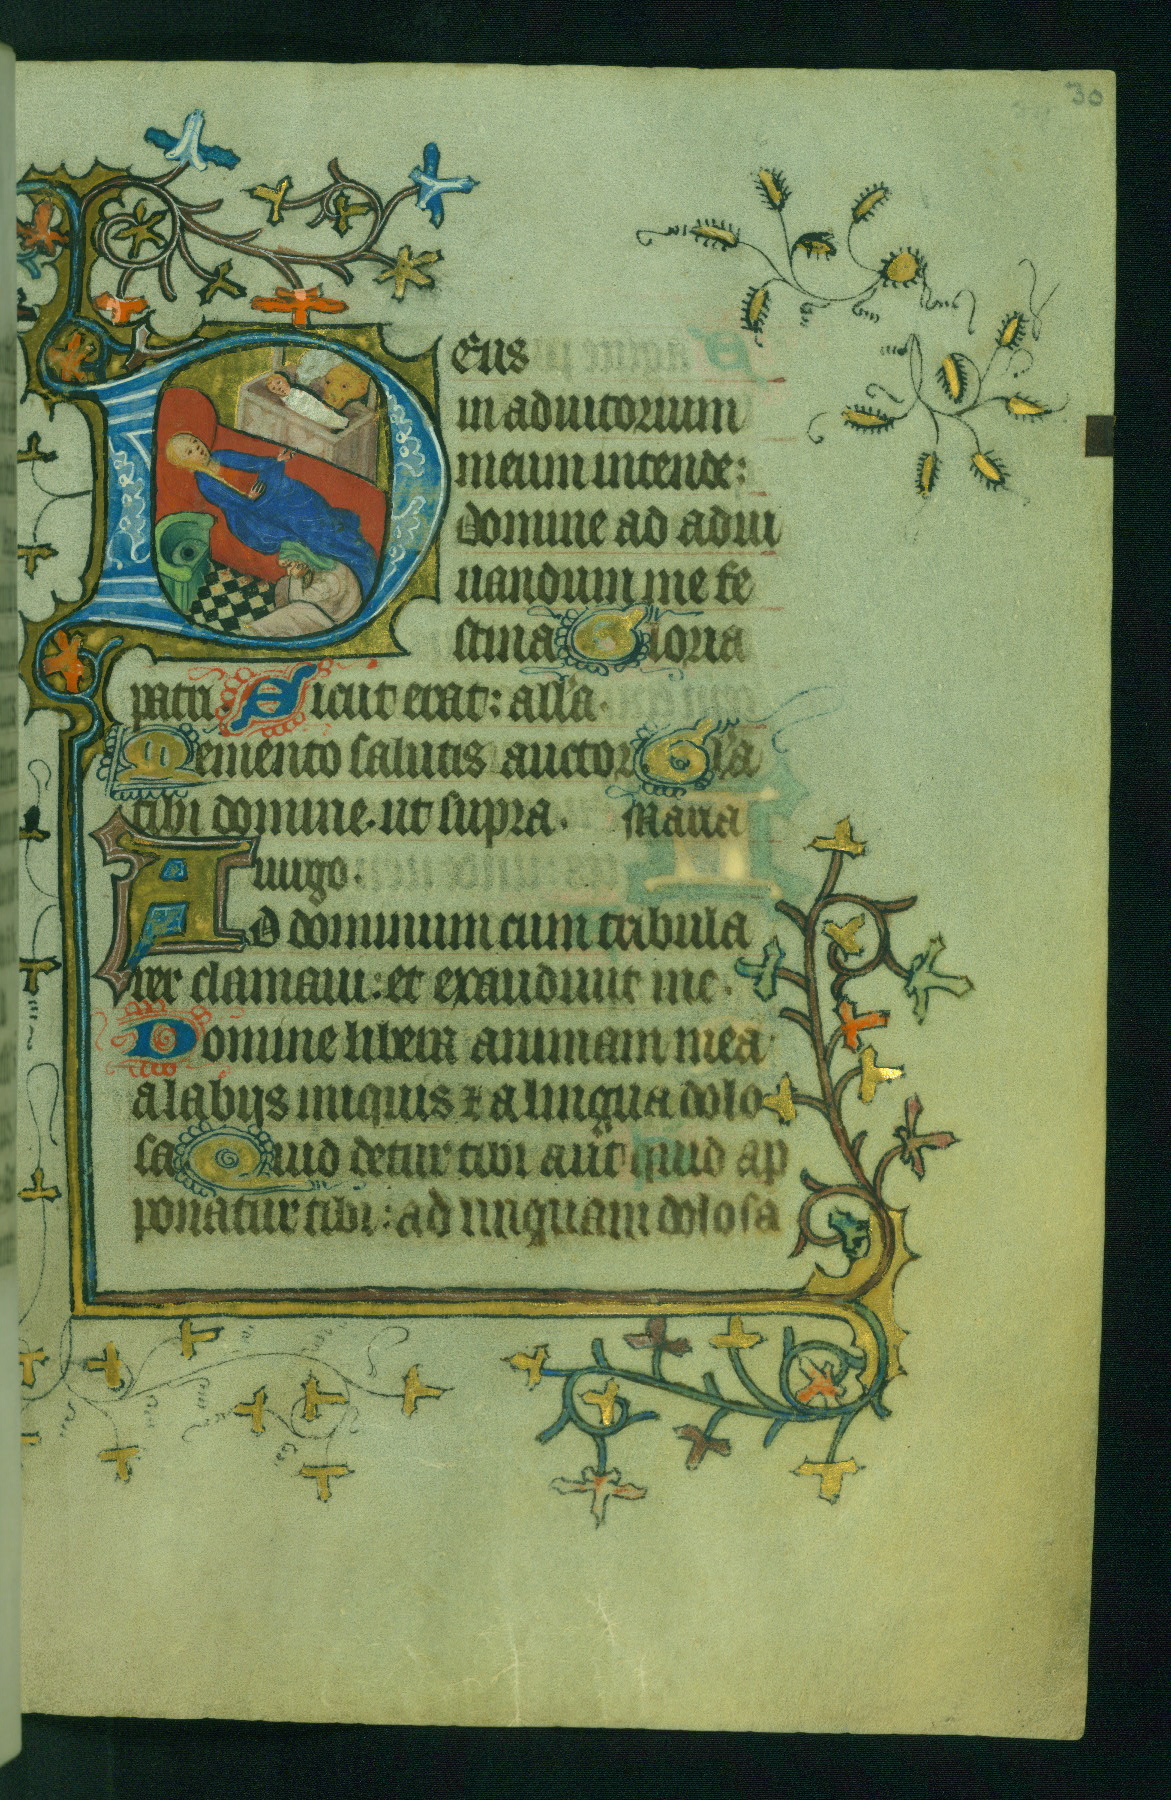 30
Deus
in adiutorium
meum intende:
domine ad adiu
uandum me fe
stina Gloria
patri Sicut erat: alla.
Memento salutis auctor Gl'a
tibi domine. ut supra. Maria
uirgo.
AD dominum cum tribula
rer clamaui: et exaudiuit me.
Domine libera animam mea
a labijs iniquis ⁊ a lingua dolo
sa Quid detur tibi aut quid ap
ponatur tibi: ad linguam dolosa